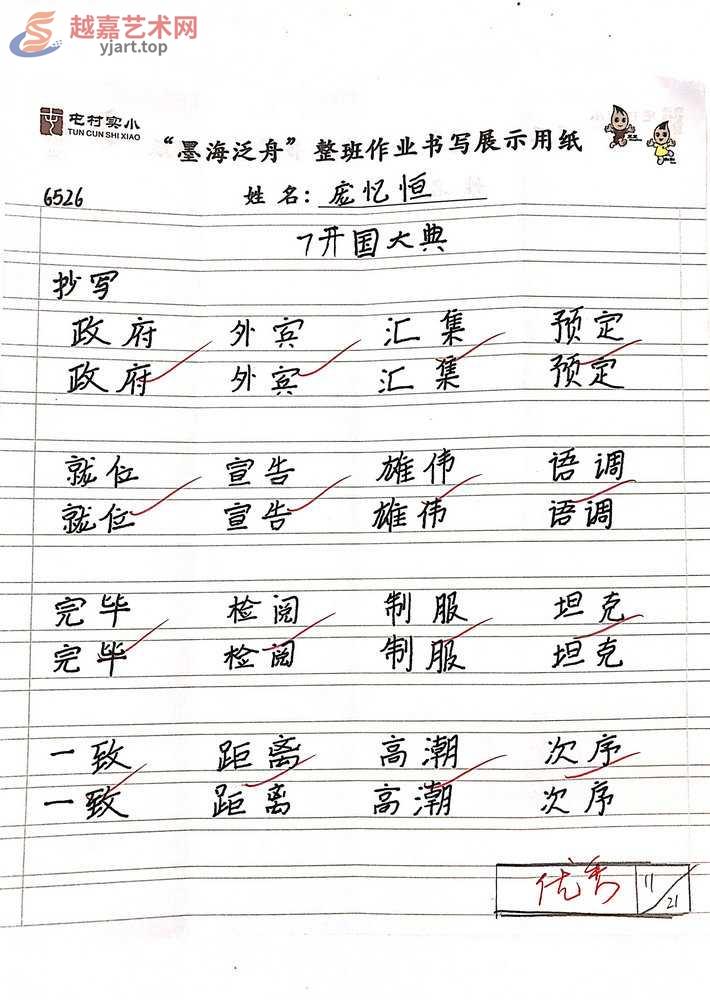 越嘉艺术网
yjart.top
屯村实小
TUN CUN SHI XIAO
“墨海泛舟”整班作业书写展示用纸
6526
姓名：庞忆恒
7开国大典
抄写
政府 外宾 汇集 预定
政府 外宾 汇集 预定
就位 宣告 雄伟 语调
就位 宣告 雄伟 语调
完毕 检阅 制服 坦克
完毕 检阅 制服 坦克
一致 距离 高潮 次序
一致 距离 高潮 次序
优秀 11/21